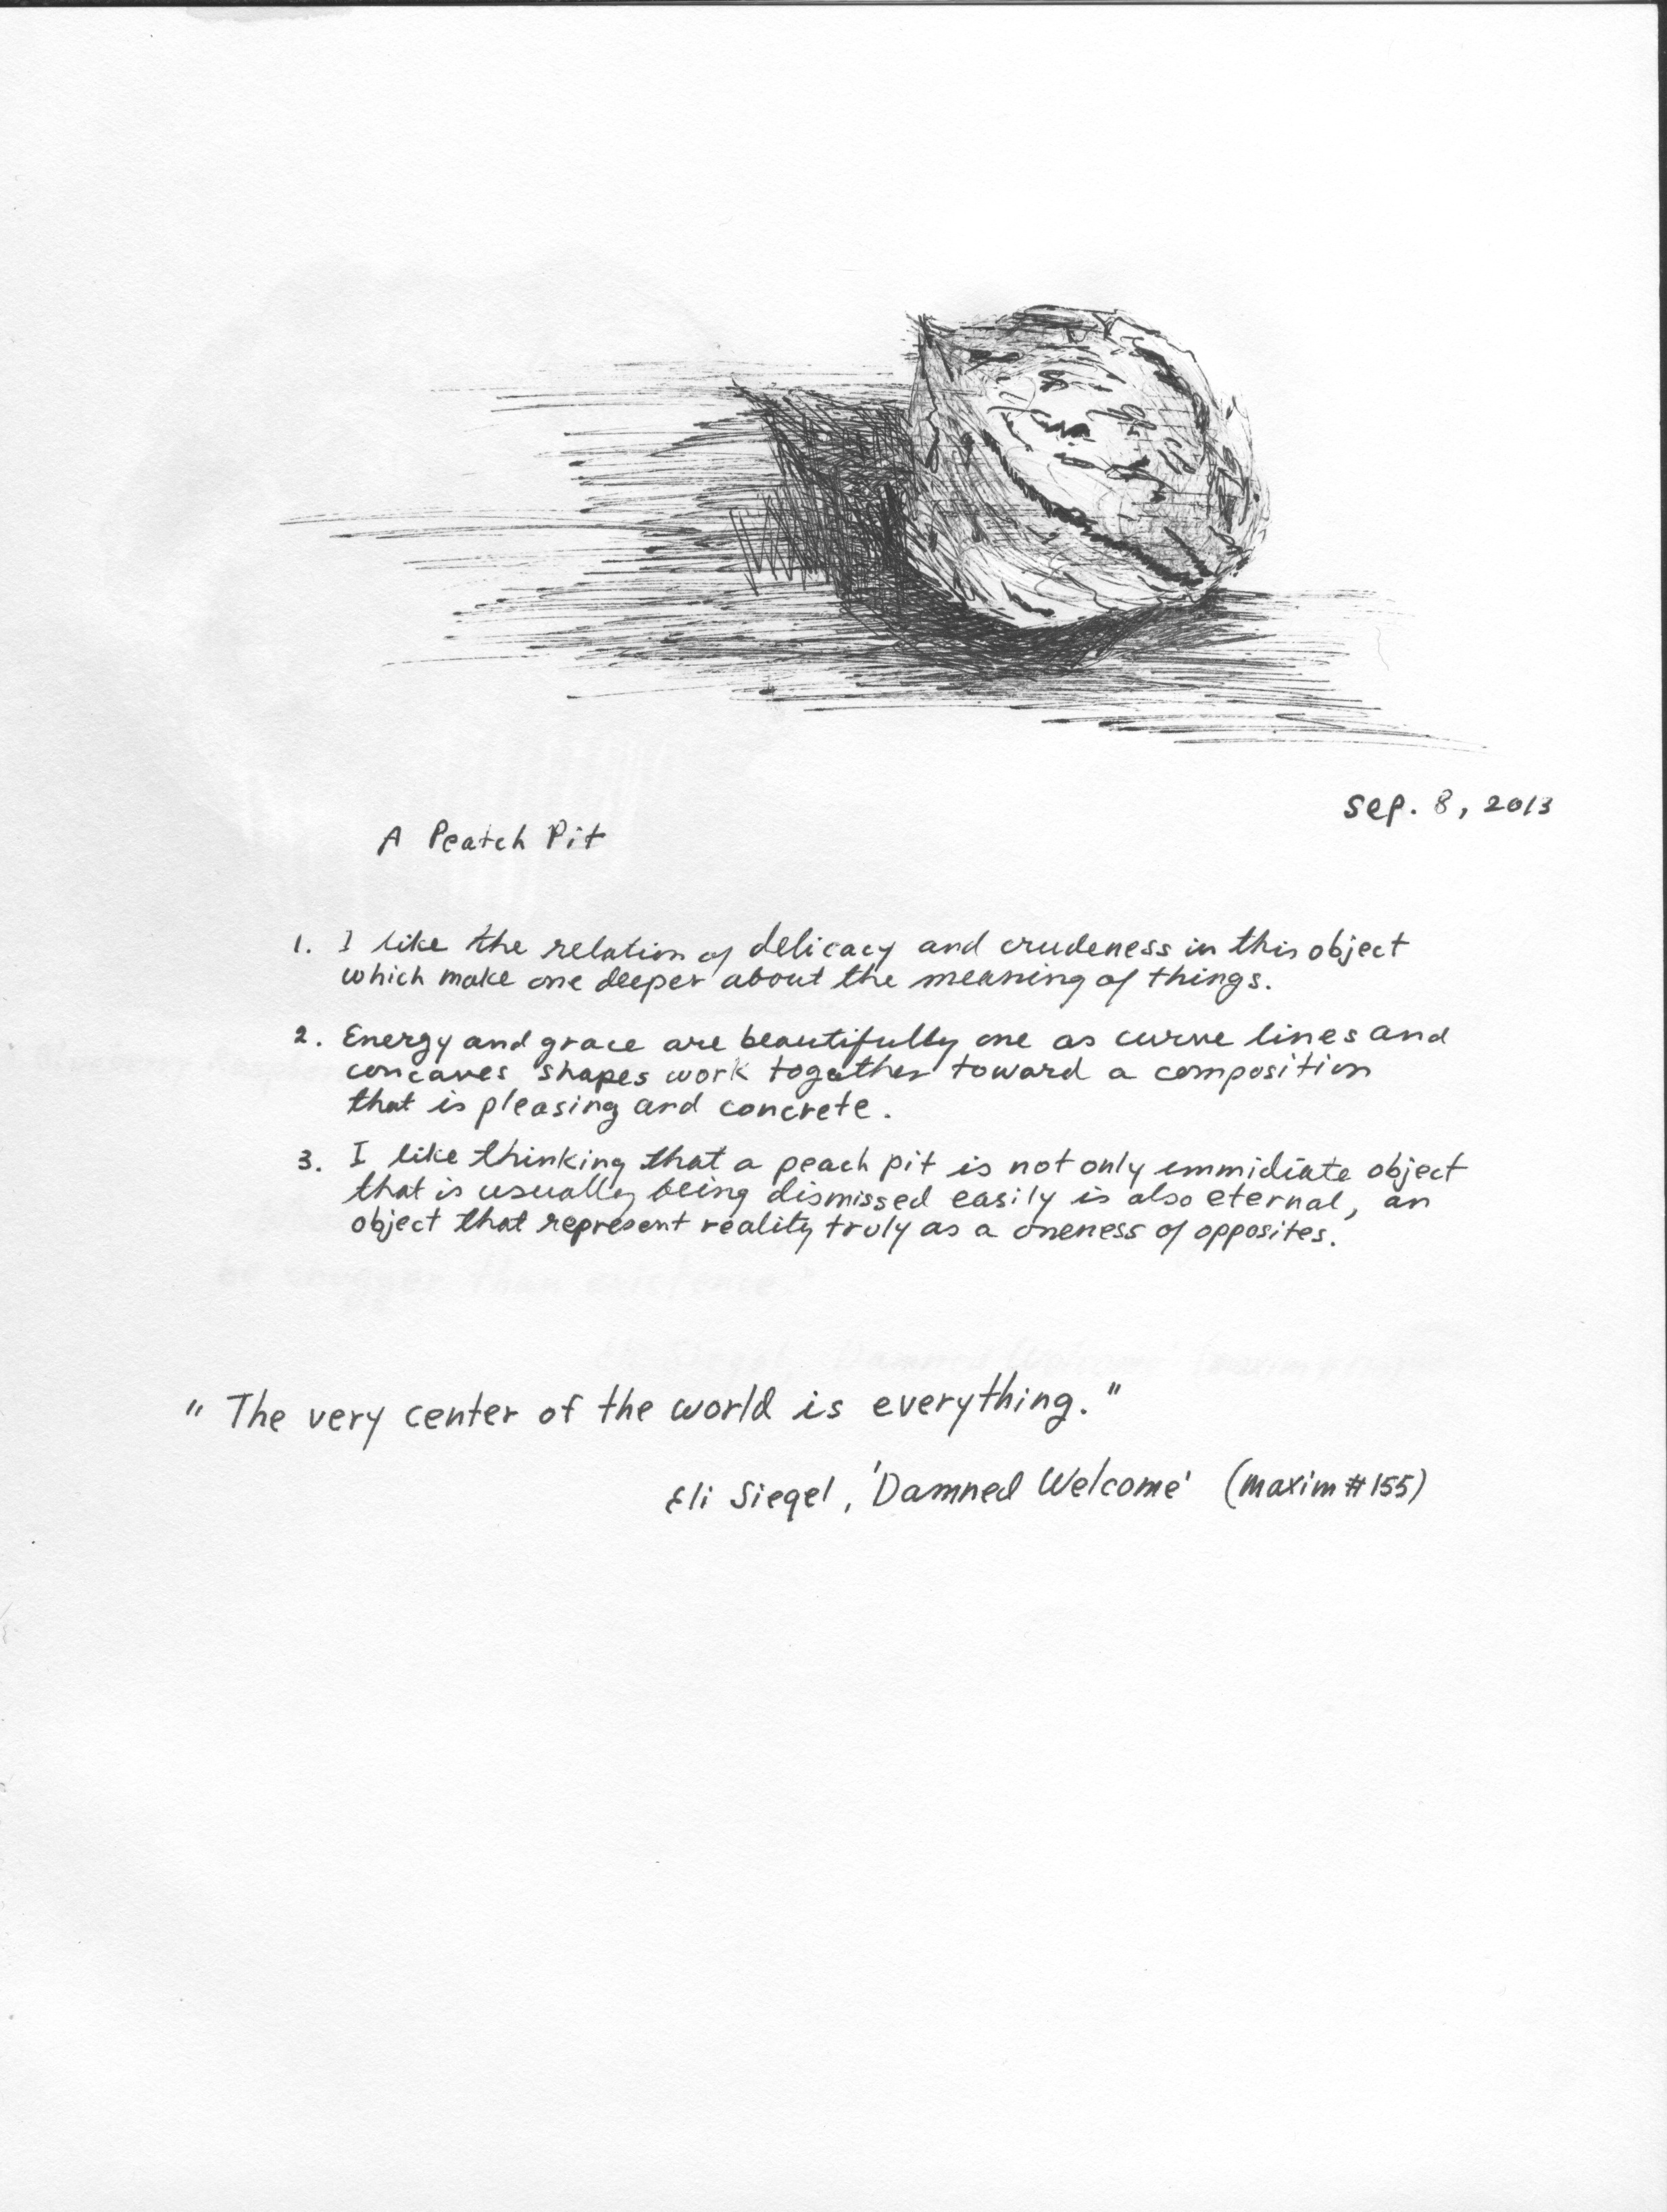 Sep. 8, 2013
A Peatch Pit
1. I like the relation of delicacy and crudeness in this object
which make one deeper about the meaning of things.
2. Energy and grace are beautifully one as curve lines and
concaves shapes work together toward a composition
that is pleasing and concrete.
3. I like thinking that a peach pit is not only immidiate object
that is usually being dismissed easily is also eternal, an
object that represent reality truly as a oneness of opposites.
" The very center of the world is everything."
Eli Siegel, 'Damned Welcome' (maxim # 155)